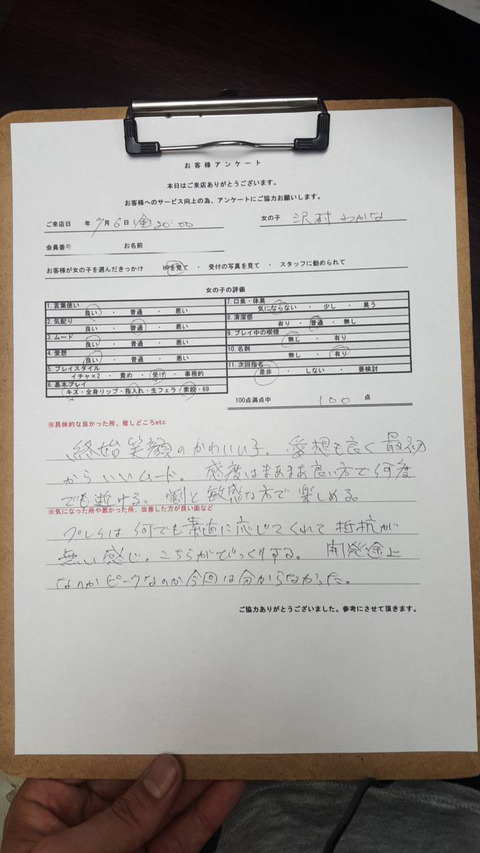 お客様アンケート
本日はご来店ありがとうございます。
お客様へのサービス向上の為、アンケートにご協力お願いします。
ご来店日 年 7月 6日 (金) 20:00 女の子 沢村 わかな
会員番号 お名前
お客様が女の子を選んだきっかけ HPを見て ・ 受付の写真を見て ・ スタッフに勧められて
女の子の評価
1. 言葉使い
良い ・ 普通 ・ 悪い
2. 気配り
良い ・ 普通 ・ 悪い
3. ムード
良い ・ 普通 ・ 悪い
4. 愛想
良い ・ 普通 ・ 悪い
5. プレイスタイル
イチャ×2 ・ 責め ・ 受け ・ 事務的
6. 基本プレイ
(キス・全身リップ・指入れ・生フェラ・素股・69
7. 口臭・体臭
気にならない ・ 少し ・ 臭う
8. 清潔感
有り ・ 普通 ・ 無し
9. プレイ中の喫煙
無し ・ 有り
10. 名刺
無し ・ 有り
11. 次回指名
是非 ・ しない ・ 要検討
100点満点中 100 点
※具体的な良かった所、推しどころetc
終始笑顔のかわいい子。愛想も良く最初
からいいムード。感度はまあまあ良い方で何度
でも逝ける。割と敏感な方で楽しめる。
※気になった所や悪かった所、改善した方が良い面など
プレイは何でも素直に応じてくれて抵抗が
無い感じ。こちらがびっくりする。開発途上
なのかピークなのか今回は分からなかった。
ご協力ありがとうございました。参考にさせて頂きます。